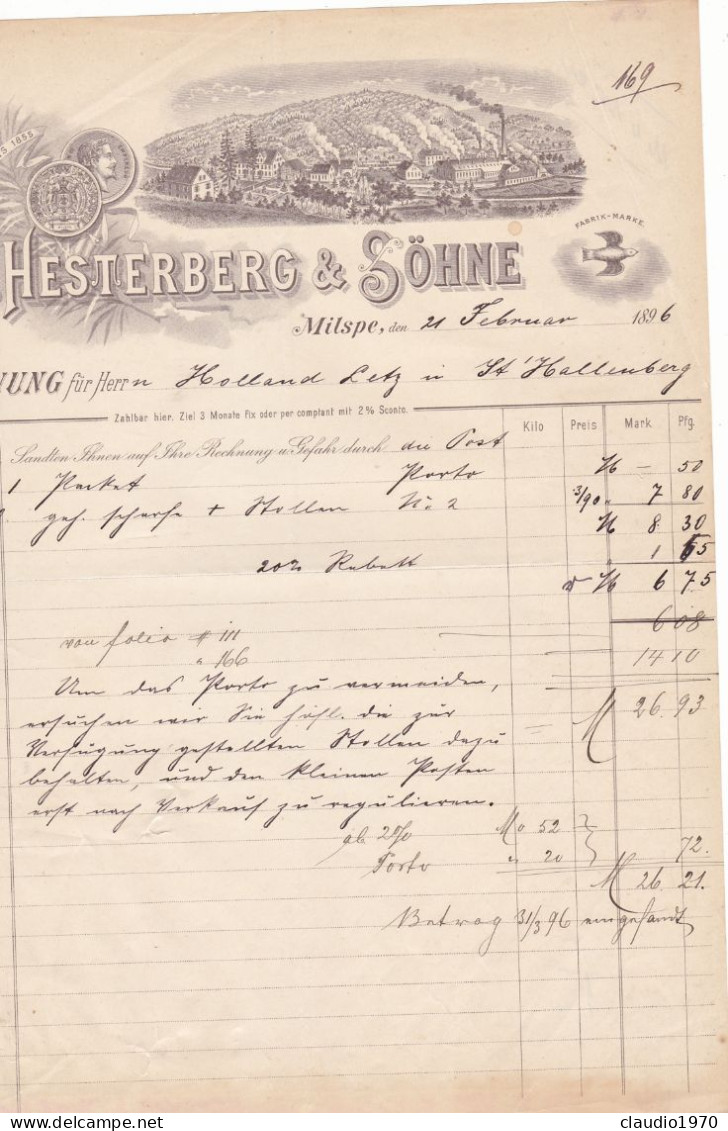 169
S 1855
HESTERBERG & SÖHNE
FABRIK-MARKE.
Milspe, den 21 Februar 1896
NUNG für Herrn Holland Letz in St' Hallenberg
Zahlbar hier. Ziel 3 Monate fix oder per comptant mit 2% Sconto.
Kilo Preis Mark Pfg.
Sandten Ihnen auf Ihre Rechnung u Gefahr durch die Post
1 Packet Porto M — 50
geh. scharfe + Stollen No 2 3/90 " 7 80
M 8 30
20% Rabatt 1 55
M 6 75
von folio # 111 6 08
" 166 14 10
Um das Porto zu vermeiden, M 26. 93
ersuchen wir Sie höfl. die zur
Verfügung gestellten Stollen dazu
behalten, und den kleinen Posten
erst nach Verkauf zu regulieren.
ab 2% M 0 52
Porto " 20 72.
M 26. 21.
Betrag 31/3 96 eingesandt
claudio1970